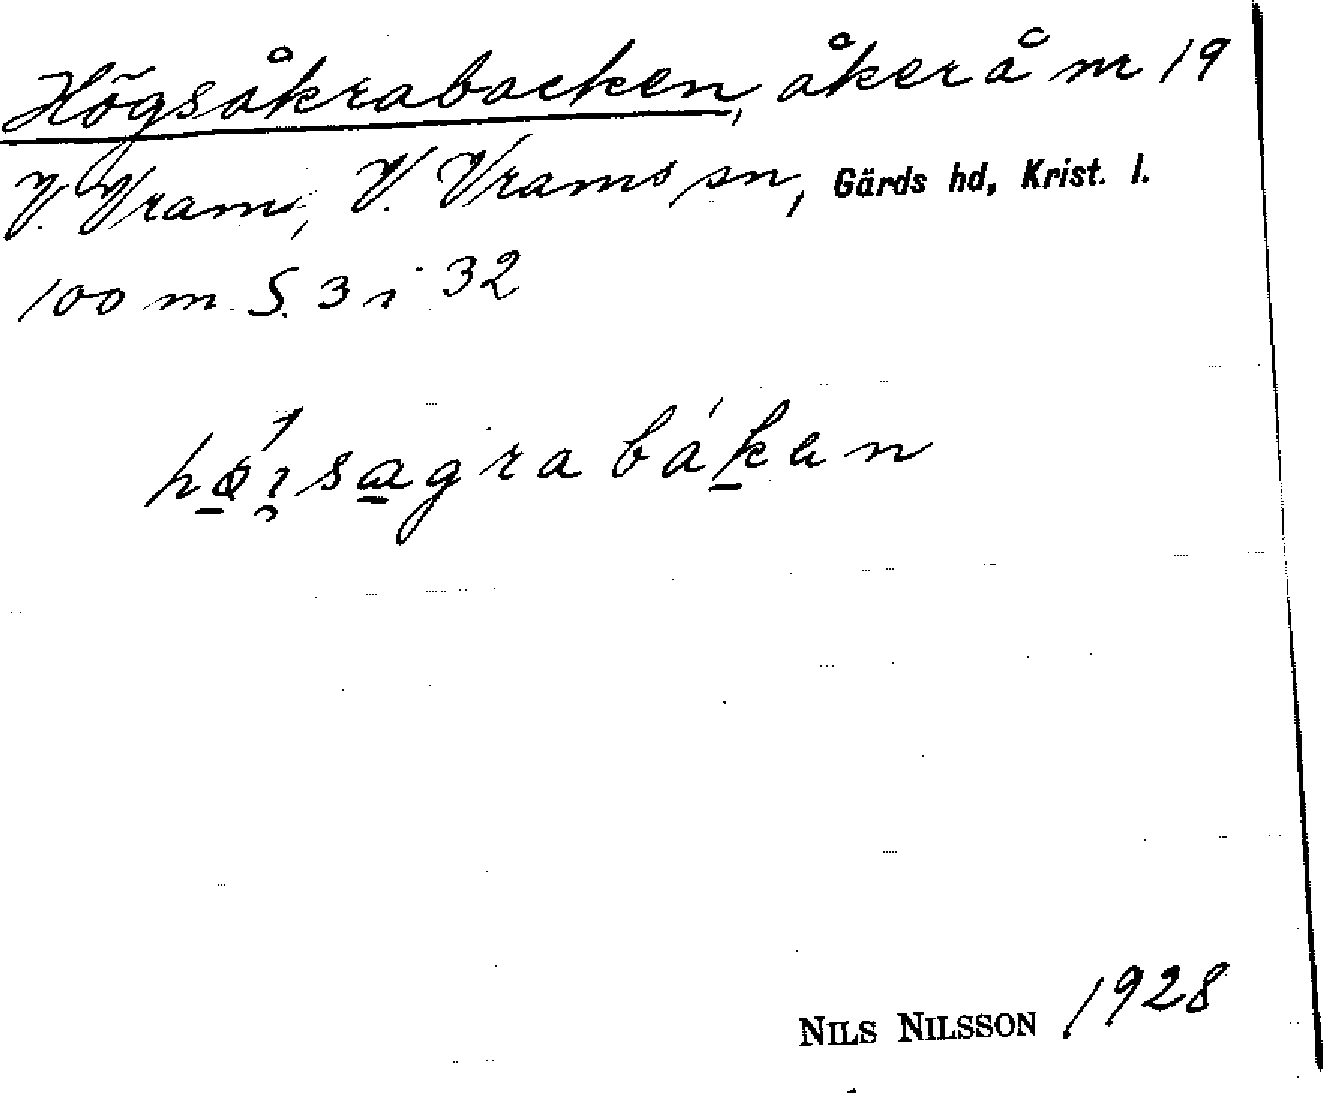 Högsåkrabacken, åker å nr 19
V. Vram, V. Vrams sn, Gärds hd, Krist. l.
100 m S. 3 i 32
hø̱i̯sa̱grabáḵen
NILS NILSSON 1928